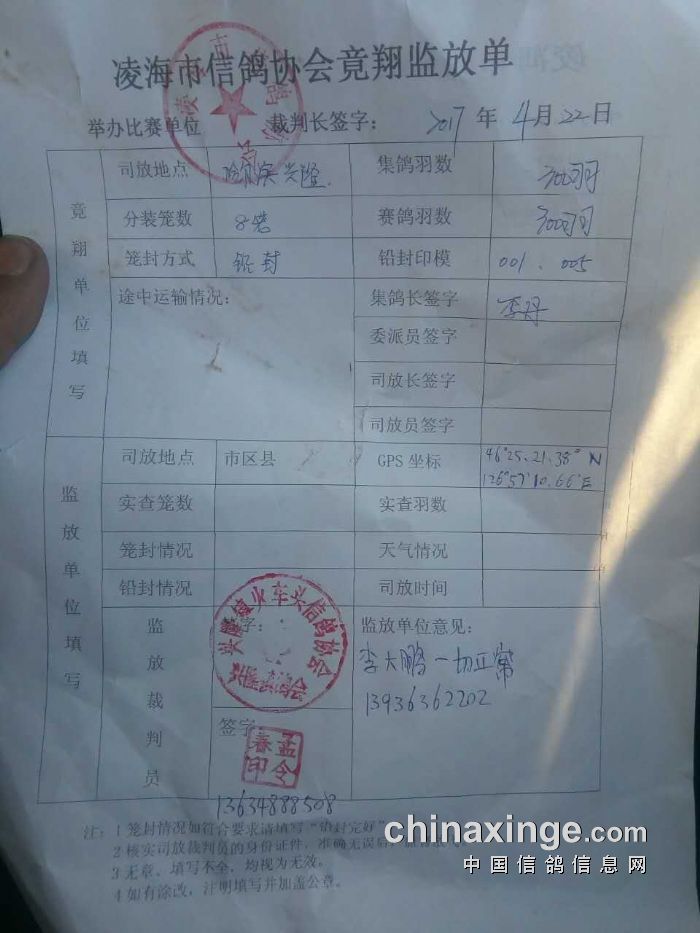 凌海市信鸽协会竟翔监放单
举办比赛单位 裁判长签字: 2017 年 4月 22 日
竟翔单位填写
司放地点 哈尔滨兴隆 集鸽羽数 300羽
分装笼数 8笼 赛鸽羽数 300羽
笼封方式 铅封 铅封印模 001、005
途中运输情况: 集鸽长签字 李丹
委派员签字
司放长签字
司放员签字
监放单位填写
司放地点 市区县 GPS 坐标 46°25.21.38" N
126°57'10.66"E
实查笼数 实查羽数
笼封情况 天气情况
铅封情况 司放时间
监放裁判员
签字: 监放单位意见:
兴隆镇火车头信鸽协会
李大鹏 一切正常
13936362202
签字:
孟令春印
13634888508
注: 1 笼封情况如符合要求请填写“铅封完好”
2 核实司放裁判员的身份证件,准确无误后
3 无章、填写不全,均视为无效。
4 如有涂改,注明填写并加盖公章。
chinaxinge.com
中国信鸽信息网